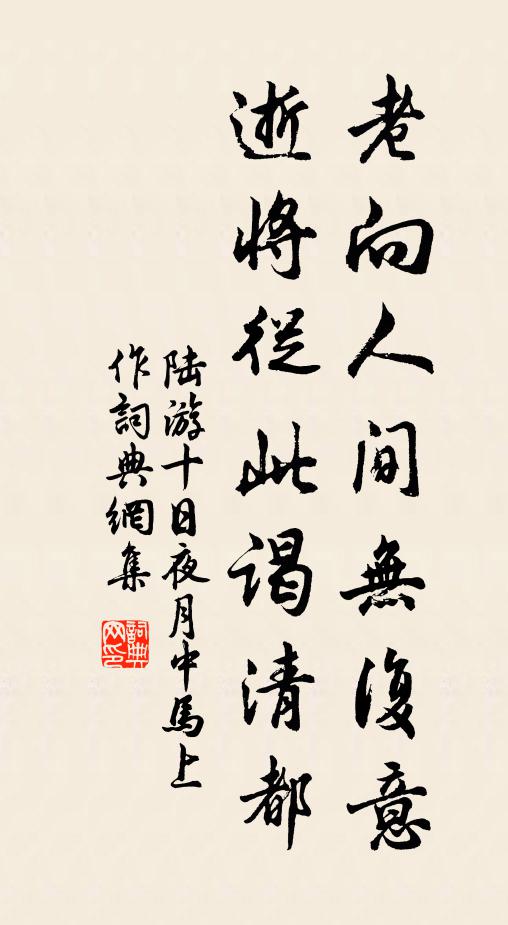 老向人间無復意
逝將從此謁清都
陆游十日夜月中馬上
作詞典網集
詞典网印